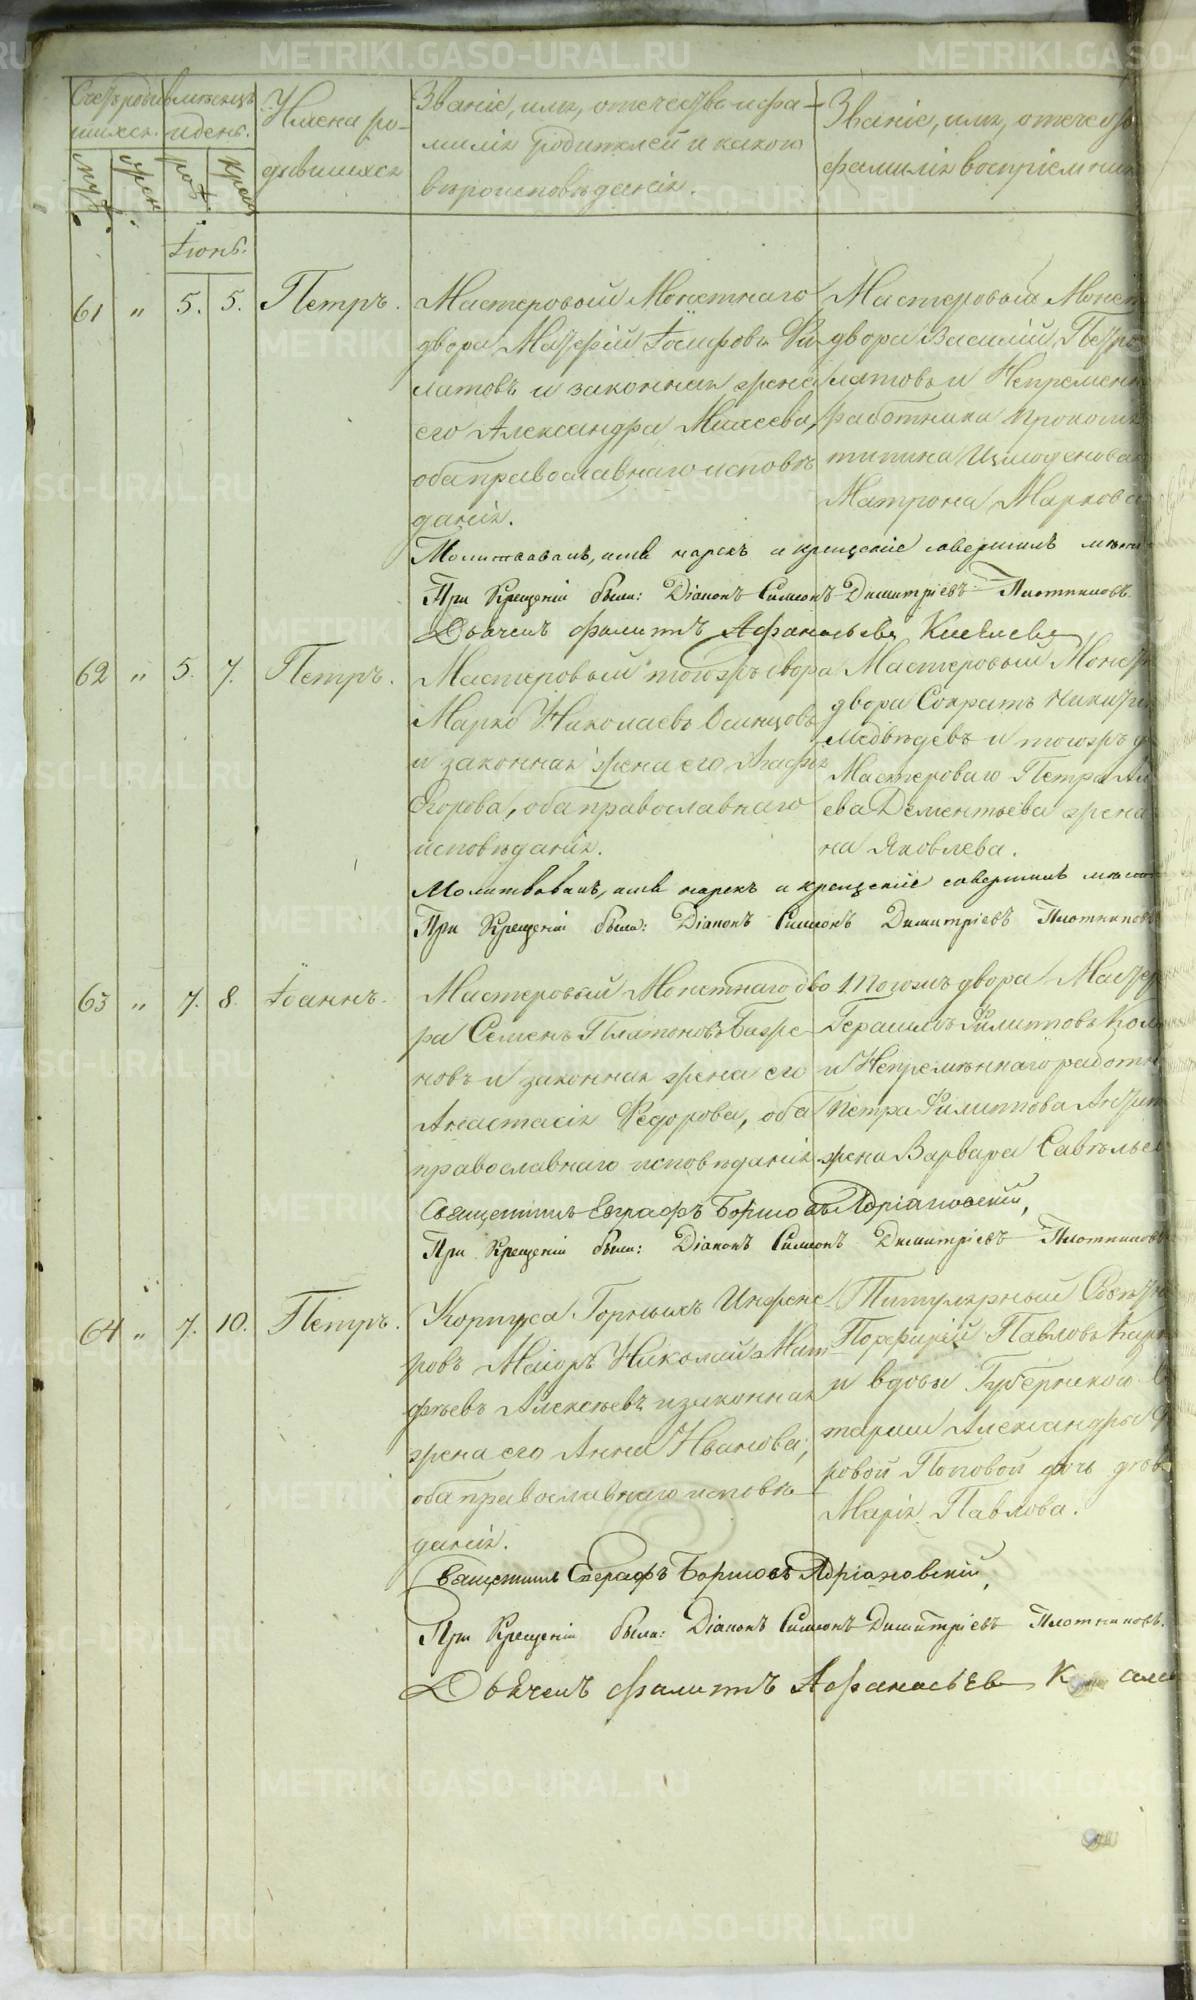 Счетъ родив
шихся.
Мѣсяцъ
и день.
Имена ро-
дившихся
Званіе, имя, отечество и фа-
милія родителей и какого
вѣроисповѣданія.
Званіе, имя, отечество
фамилія воспріемник
муж.
жен.
рож.
крещ.
Іюнь.
61 " 5. 5. Петръ.
Мастеровой Монетнаго
двора Матфій Іосифовъ Фи
латовъ и законная жена
его Александра Моисеева,
оба православнаго исповѣ
данія.
Мастеровый Монет
двора Василій Петро
латовъ и Непременн
работника Прокопія
Матрона Маркова
Молитвовалъ, имя нарекъ и крещеніе совершилъ
При Крещеніи былъ: Діаконъ Симеонъ Димитріевъ Плотниковъ.
Дьячекъ Филиппъ Афанасьевъ Киселевъ
62 " 5. 7. Петръ.
Мастеровый тогожъ двора
Марко Николаевъ Осинцовъ
и законная жена его Агафья
Егорова, оба православнаго
исповѣданія.
Мастеровый Монетн
двора Сократъ Никит
Медвѣдевъ и тогожъ д
Мастероваго Петра Ал
ева Дементьева жена
на Яковлева.
Молитвовалъ, имя нарекъ и крещеніе совершилъ
При Крещеніи былъ: Діаконъ Симеонъ Димитріевъ Плотниковъ
63 " 7. 8. Іоаннъ.
Мастеровый Монетнаго дво
ра Семенъ Платоновъ Баже
новъ и законная жена его
Анастасія Федорова, оба
православнаго исповѣданія
Тогожъ двора Мастер
Герасимъ Филиповъ Кол
и Непремѣннаго работн
Петра Филиппова Антип
жена Варвара Савельев
Священникъ Евграфъ Борисовъ Адріановскій,
При Крещеніи былъ: Діаконъ Симеонъ Димитріевъ Плотниковъ
64 " 7. 10. Петръ.
Корпуса Горныхъ Инжене
ровъ Маіоръ Николай Мат
фѣевъ Алексѣевъ и законная
жена его Анна Иванова,
оба православнаго исповѣ
данія.
Титулярный Совѣтн
Порфирій Павловъ Карп
и вдовы Губернской
тарши Александры
ровой Поповой дочь дѣв
Марія Павлова.
Священникъ Евграфъ Борисовъ Адріановскій,
При Крещеніи былъ: Діаконъ Симеонъ Димитріевъ Плотниковъ.
Дьячекъ Филиппъ Афанасьевъ
METRIKI.GASO-URAL.RU